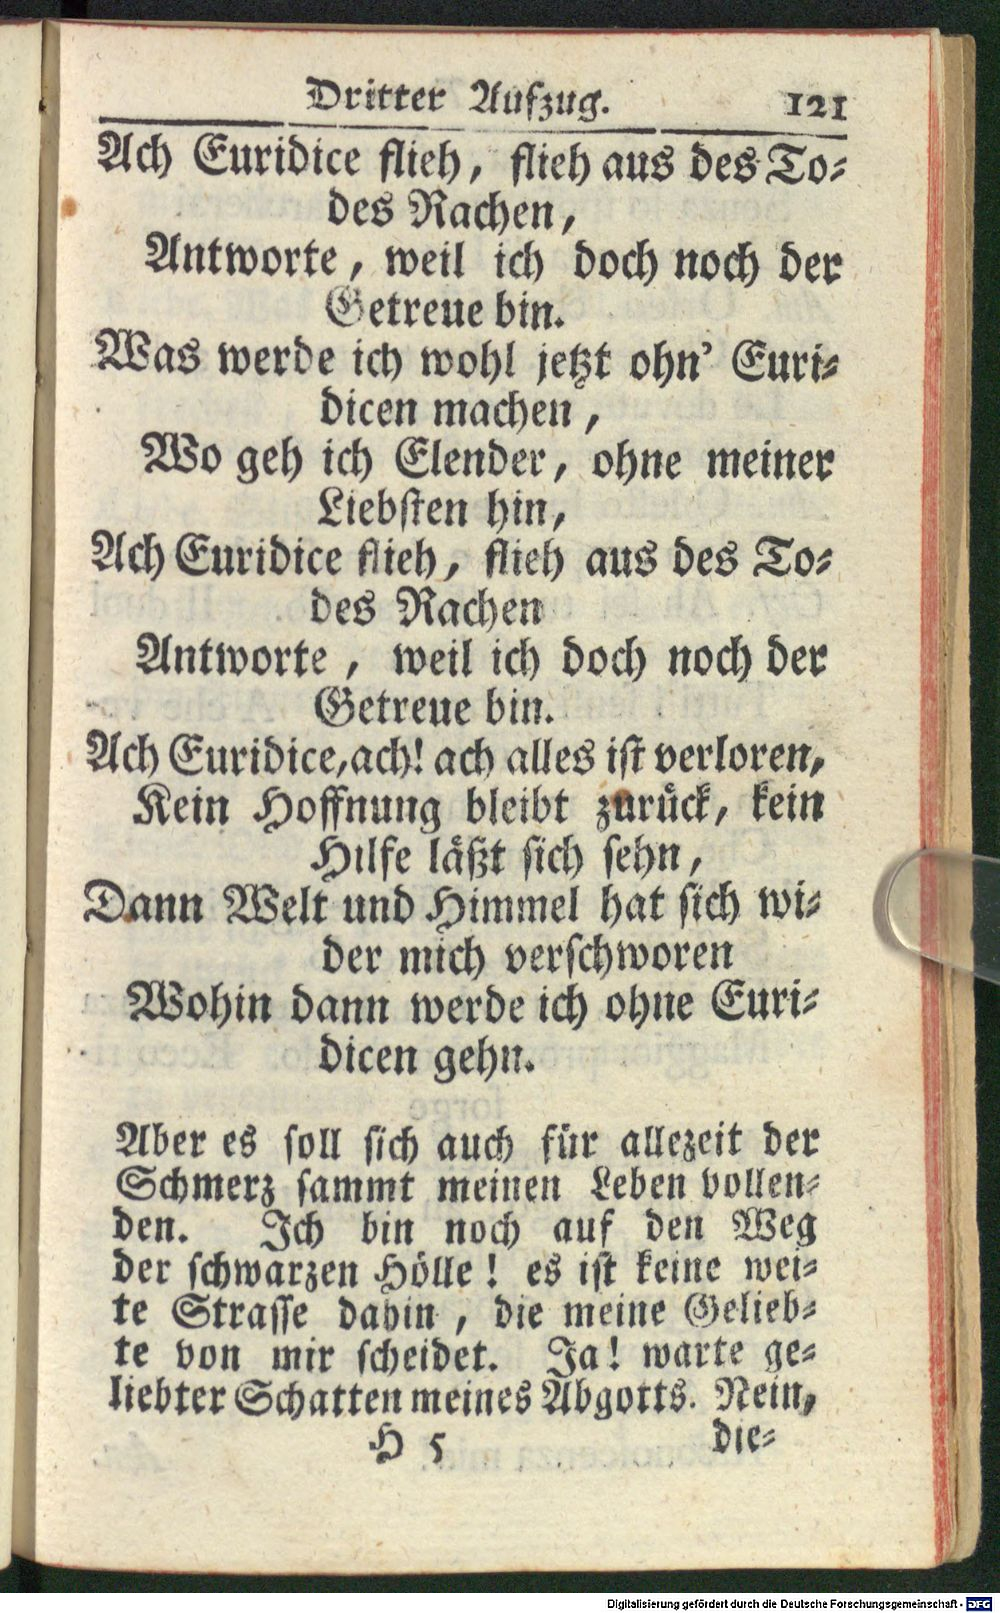 Dritter Aufzug. 121
Ach Euridice flieh, flieh aus des To-
des Rachen,
Antworte, weil ich doch noch der
Getreue bin.
Was werde ich wohl jetzt ohn' Euri-
dicen machen,
Wo geh ich Elender, ohne meiner
Liebsten hin,
Ach Euridice flieh, flieh aus des To-
des Rachen
Antworte, weil ich doch noch der
Getreue bin.
Ach Euridice, ach! ach alles ist verloren,
Kein Hoffnung bleibt zurück, kein
Hilfe läßt sich sehn,
Dann Welt und Himmel hat sich wi-
der mich verschworen
Wohin dann werde ich ohne Euri-
dicen gehn.
Aber es soll sich auch für allezeit der
Schmerz sammt meinen Leben vollen-
den. Ich bin noch auf den Weg
der schwarzen Hölle! es ist keine wei-
te Strasse dahin, die meine Gelieb-
te von mir scheidet. Ja! warte ge-
liebter Schatten meines Abgotts. Nein,
H 5 die-
Digitalisierung gefördert durch die Deutsche Forschungsgemeinschaft - DFG